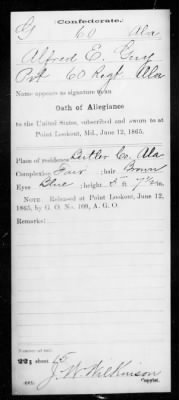 Confederate.
G 60 Ala
Alfred E. Guy
Pvt 60 Regt Ala
Name appears as signature to an
Oath of Allegiance
to the United States, subscribed and sworn to at
Point Lookout, Md., June 12, 1865.
Place of residence Butler Co. Ala
Complexion Fair ; hair Brown
Eyes Blue ; height 5 ft. 7¼ in.
NOTE.—Released at Point Lookout, June 12,
1865, by G. O. No. 109, A. G. O.
Remarks:
Number of roll:
sheet
J. W. Wilkinson
Copyist.